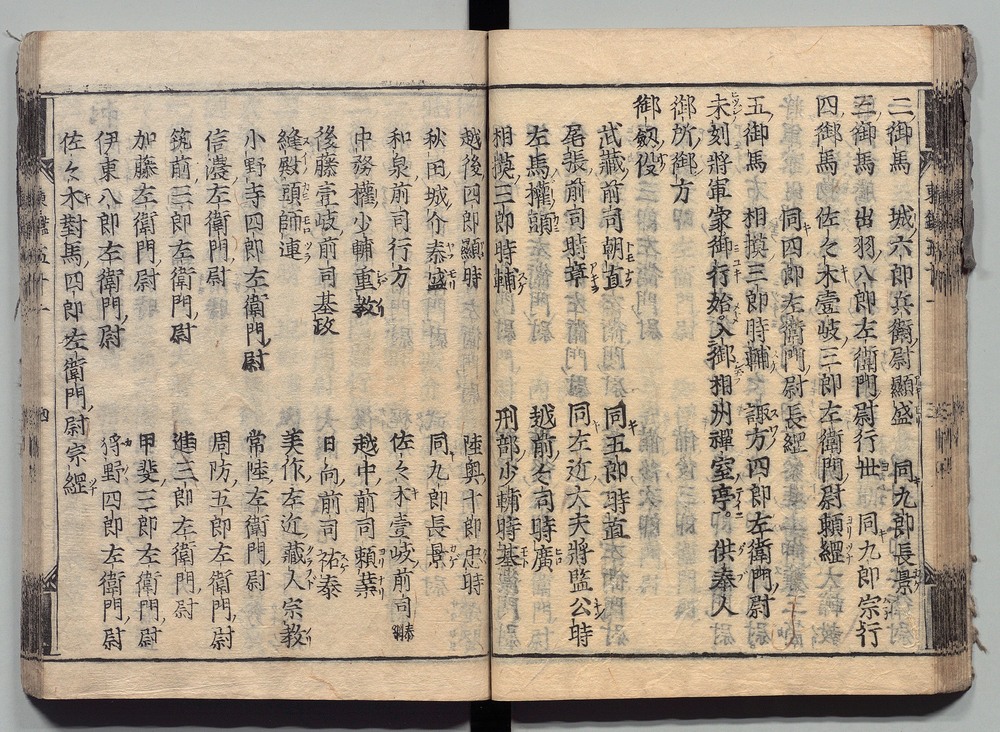 二御馬 城六郎兵衛尉顯盛 同九郎長景
三御馬 出羽八郎左衛門尉行世 同九郎宗行
四御馬 佐々木壹岐三郎左衛門尉頼經
同四郎左衛門尉長經
五御馬 相摸三郎時輔 諏方四郎左衛門尉
未刻將軍家御行始入御相州禪室亭。供奉人
御所御方
御劔役
武藏前司朝直 同五郎時直
尾張前司時章 同左近大夫將監公時
左馬權頭 越前々司時廣
相摸三郎時輔 刑部少輔時基
越後四郎顯時 陸奥十郎忠時
秋田城介泰盛 同九郎長景
和泉前司行方 佐々木壹岐前司泰綱
中務權少輔重教 越中前司頼業
後藤壹岐前司基政 日向前司祐泰
縫殿頭師連 美作左近藏人宗教
小野寺四郎左衛門尉 常陸左衛門尉
信濃左衛門尉 周防五郎左衛門尉
筑前三郎左衛門尉 進三郎左衛門尉
加藤左衛門尉 甲斐三郎左衛門尉
伊東八郎左衛門尉 狩野四郎左衛門尉
佐々木對馬四郎左衛門尉宗經
四